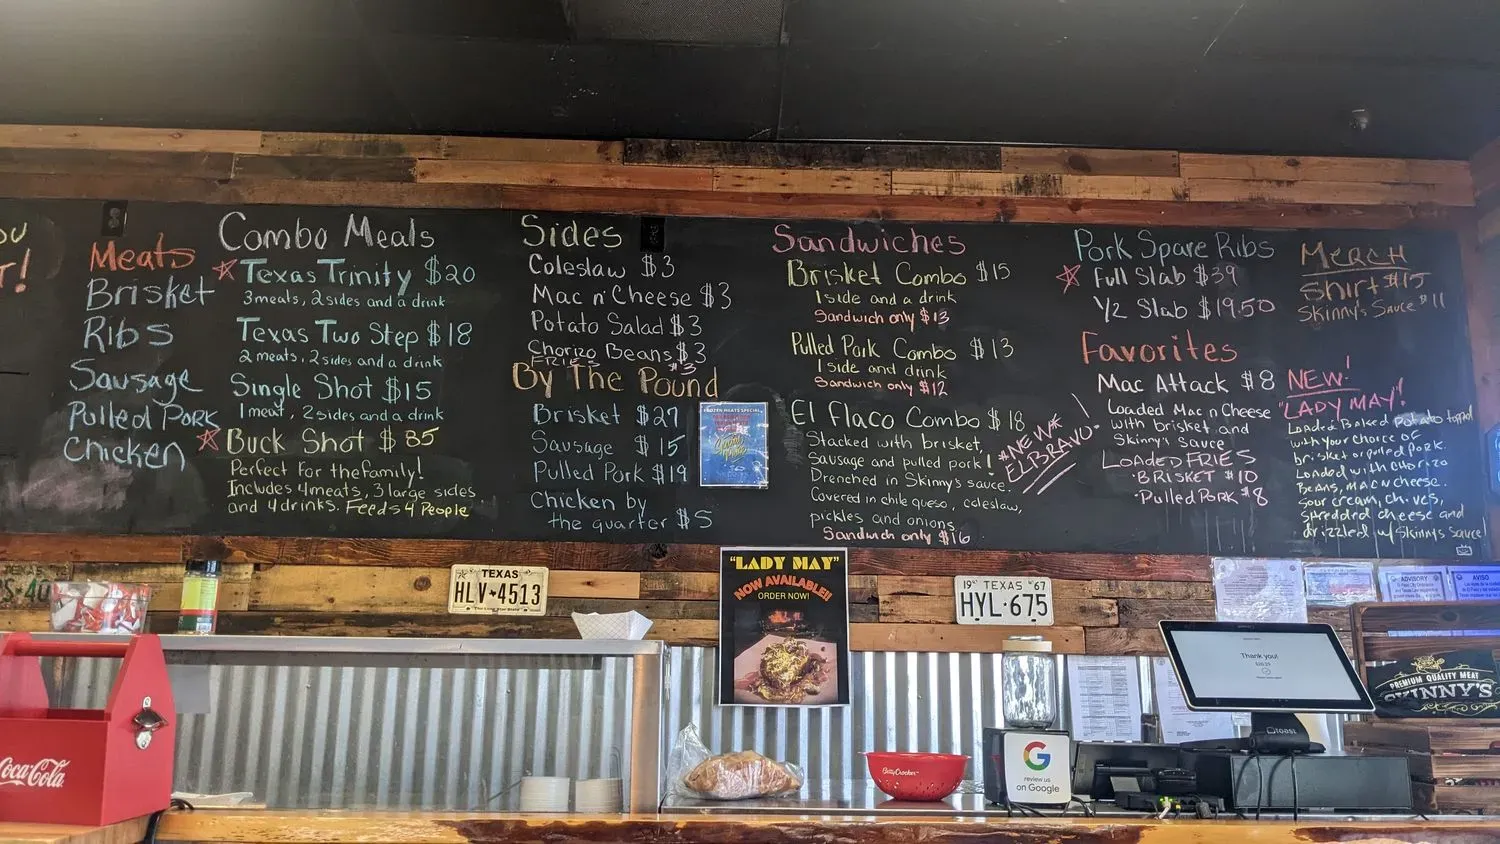 OU
T!
Meats
Brisket
Ribs
Sausage
Pulled Pork
Chicken
Combo Meals
Texas Trinity $20
3 meats, 2 sides and a drink
Texas Two Step $18
2 meats, 2 sides and a drink
Single Shot $15
1 meat, 2 sides and a drink
Buck Shot $85
Perfect For the family!
Includes 4 meats, 3 large sides
and 4 drinks. Feeds 4 People
Sides
Coleslaw $3
Mac n' Cheese $3
Potato Salad $3
Chorizo Beans $3
FRIES $3
By The Pound
Brisket $27
Sausage $15
Pulled Pork $19
Chicken by
the quarter $5
FROZEN MEATS SPECIAL
Sandwiches
Brisket Combo $15
1 side and a drink
Sandwich only $13
Pulled Pork Combo $13
1 side and drink
Sandwich only $12
El Flaco Combo $18
Stacked with brisket,
Sausage and pulled pork!
Drenched in Skinny's sauce.
Covered in chile queso, coleslaw,
pickles and onions
Sandwich only $16
*NEW*
EL BRAVO
Pork Spare Ribs
Full Slab $39
1/2 Slab $19.50
Favorites
Mac Attack $8
Loaded Mac n Cheese
with brisket and
Skinny's sauce
LOADED FRIES
·BRISKET $10
·Pulled Pork $8
MERCH
Shirt $15
Skinny's Sauce $11
NEW!
"LADY MAY"!
Loaded Baked Potato topped
with your choice of
brisket or pulled pork.
Loaded with chorizo
Beans, mac n cheese.
Sour cream, chives,
shredded cheese and
drizzled w/ Skinny's sauce!
"LADY MAY"
NOW AVAILABLE!!
ORDER NOW!
TEXAS
HLV★4513
19 TEXAS 67
HYL·675
ADVISORY
AVISO
Thank you!
toast
PREMIUM QUALITY MEAT
SKINNY'S
Coca-Cola
Betty Crocker
G
review us
on Google